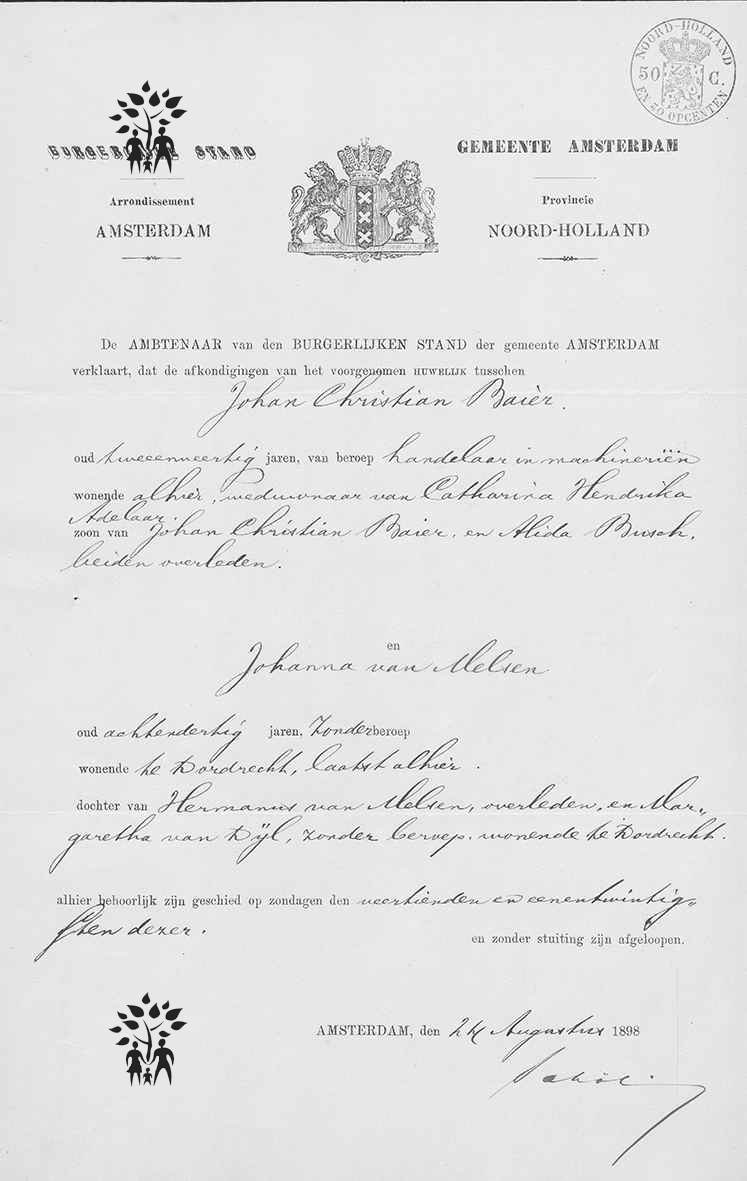 NOORD-HOLLAND
50 C.
EN 50 OPCENTEN
BURGERLIJKE STAND
GEMEENTE AMSTERDAM
Arrondissement
Provincie
AMSTERDAM
NOORD-HOLLAND
De AMBTENAAR van den BURGERLIJKEN STAND der gemeente AMSTERDAM
verklaart, dat de afkondigingen van het voorgenomen HUWELIJK tusschen
Johan Christian Baier.
oud tweeenveertig jaren, van beroep handelaar in machineriën
wonende alhier, weduwnaar van Catharina Hendrika
Adelaar.
zoon van Johan Christian Baier, en Alida Busch,
beiden overleden.
en
Johanna van Melsen
oud achtendertig jaren, zonder beroep
wonende te Dordrecht, laatst alhier.
dochter van Hermanus van Melsen, overleden, en Mar„
garetha van Dijl, zonder beroep, wonende te Dordrecht.
alhier behoorlijk zijn geschied op zondagen den veertienden en eenentwintig„
sten dezer.
en zonder stuiting zijn afgeloopen.
AMSTERDAM, den 24 Augustus 1898